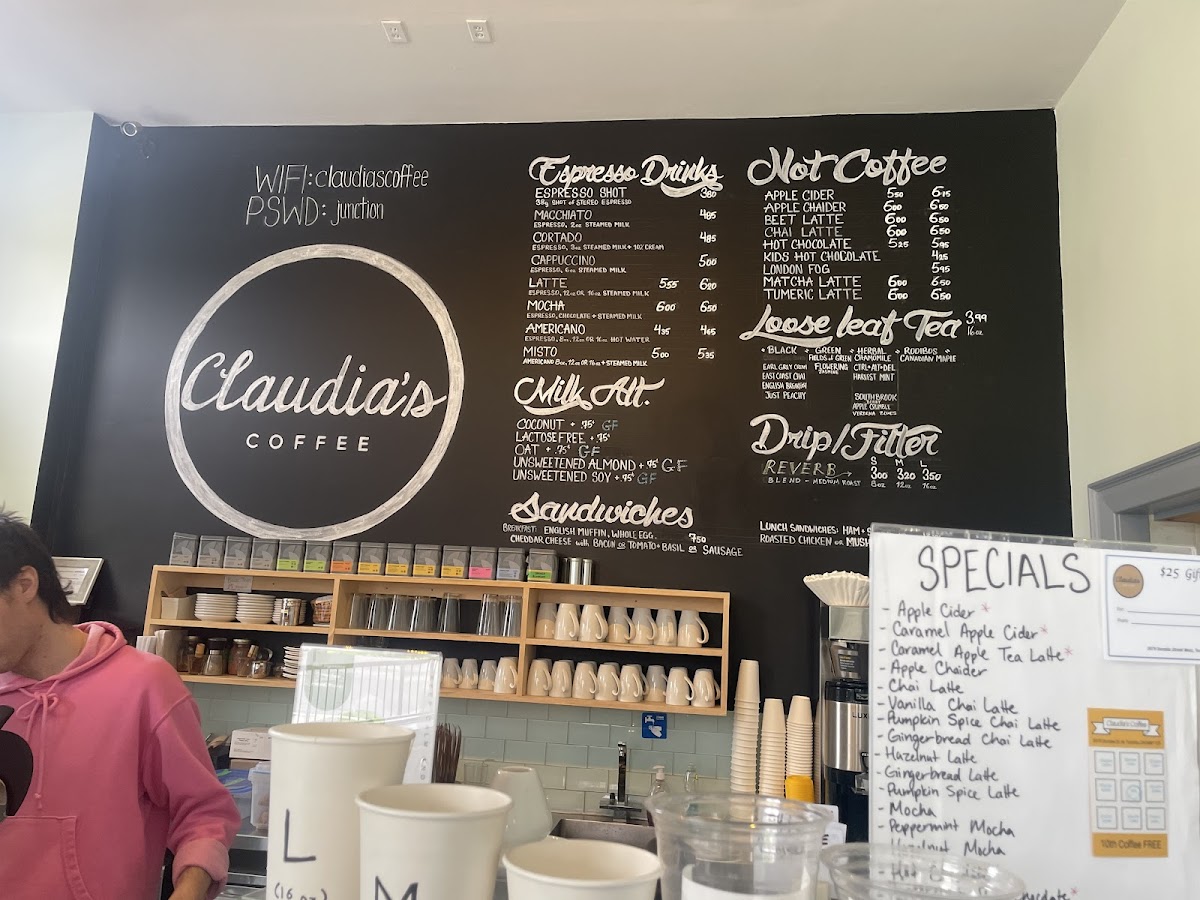 WIFI: claudiascoffee
PSWD: junction
Claudia's
COFFEE
Espresso Drinks
ESPRESSO SHOT 3.80
38g SHOT of STEREO ESPRESSO
MACCHIATO 4.85
ESPRESSO, 2oz STEAMED MILK
CORTADO 4.85
ESPRESSO, 3oz STEAMED MILK + 1oz CREAM
CAPPUCCINO 5.00
ESPRESSO, 6oz STEAMED MILK
LATTE 5.55 6.20
ESPRESSO, 12oz OR 16oz STEAMED MILK
MOCHA 6.00 6.50
ESPRESSO, CHOCOLATE + STEAMED MILK
AMERICANO 4.35 4.65
ESPRESSO, 8oz, 12oz OR 16oz HOT WATER
MISTO 5.00 5.35
AMERICANO 8oz, 12oz OR 16oz + STEAMED MILK
Milk Alt.
COCONUT + .75¢ GF
LACTOSE FREE + .75¢
OAT + .75¢ GF
UNSWEETENED ALMOND + .75¢ GF
UNSWEETENED SOY + .75¢ GF
Sandwiches
BREAKFAST: ENGLISH MUFFIN, WHOLE EGG, 7.50
CHEDDAR CHEESE with BACON OR TOMATO + BASIL OR SAUSAGE
Not Coffee
APPLE CIDER 5.50 6.15
APPLE CHAIDER 6.00 6.50
BEET LATTE 6.00 6.50
CHAI LATTE 6.00 6.50
HOT CHOCOLATE 5.25 5.95
KIDS HOT CHOCOLATE 4.25
LONDON FOG 5.95
MATCHA LATTE 6.00 6.50
TUMERIC LATTE 6.00 6.50
Loose leaf Tea 3.99
16oz
BLACK GREEN HERBAL ROOIBOS
FIELDS of GREEN CHAMOMILE CANADIAN MAPLE
EARL GREY CREAM FLOWERING CTRL+ALT+DEL
JASMINE
EAST COAST CHAI HARVEST MINT
ENGLISH BREAKFAST
JUST PEACHY SOUTHBROOK
BERRY
APPLE CRUMBLE
VERBENA
Drip/Filter
S M L
REVERB 3.00 3.20 3.50
BLEND - MEDIUM ROAST 8oz 12oz 16oz
LUNCH SANDWICHES: HAM +
ROASTED CHICKEN OR MUSH
SPECIALS
- Apple Cider *
- Caramel Apple Cider *
- Caramel Apple Tea Latte *
- Apple Chaider
- Chai Latte
- Vanilla Chai Latte
- Pumpkin Spice Chai Latte
- Gingerbread Chai Latte
- Hazelnut Latte
- Gingerbread Latte
- Pumpkin Spice Latte
- Mocha
- Peppermint Mocha
- Hazelnut Mocha
$25 Gif
Claudia's Coffee
10th Coffee FREE
LUX
L
(16 oz)
M